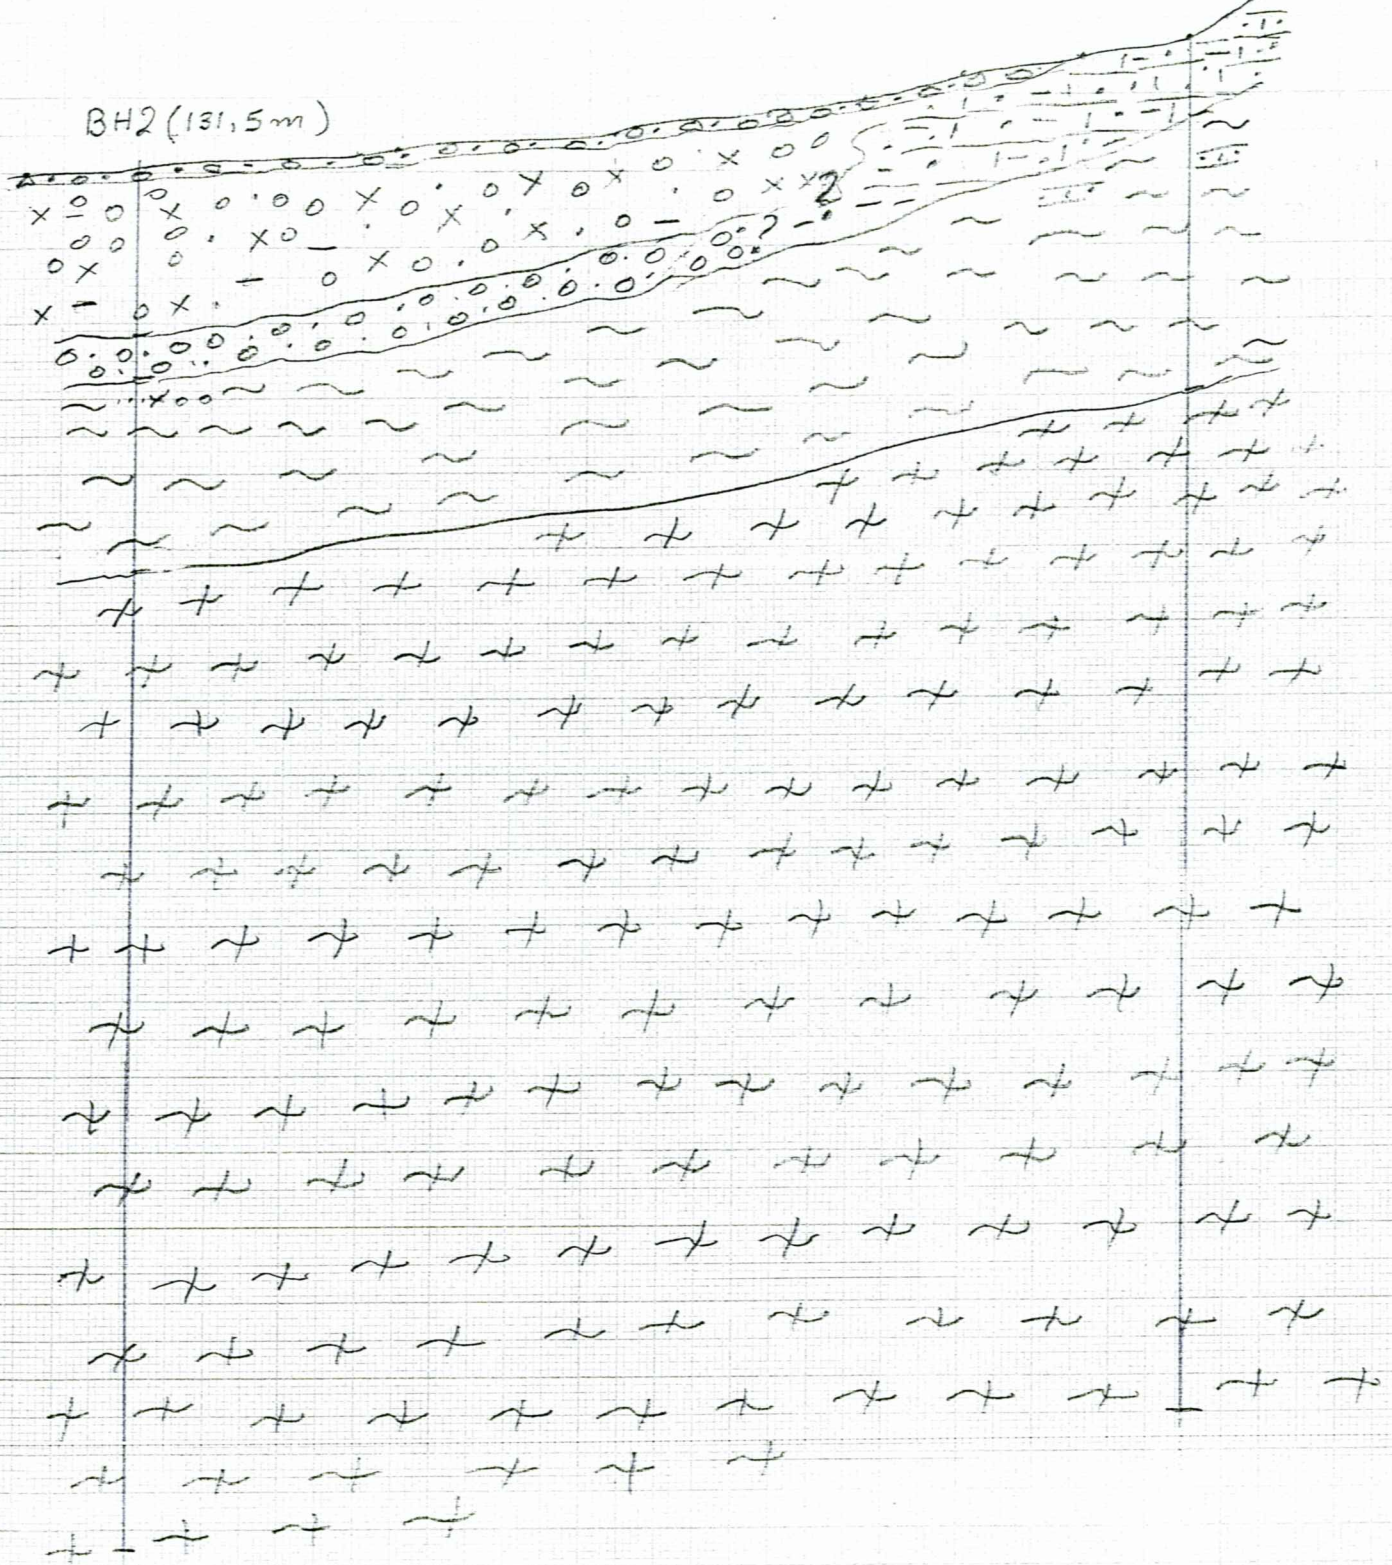 BH2 (131,5m)
?
?